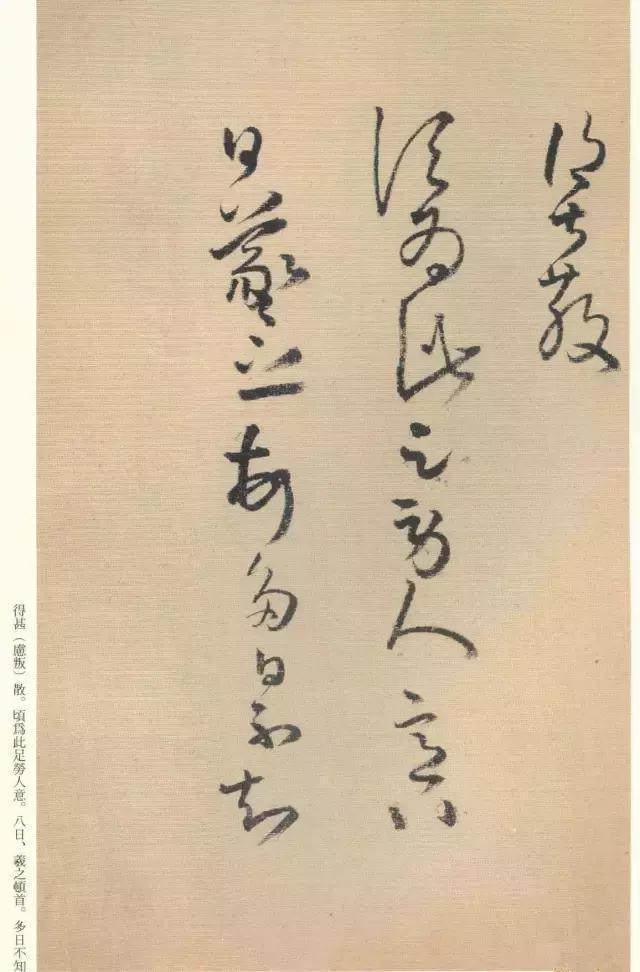 得甚散
頃爲此足勞人意八
日羲之頓首多日不知
得甚（慮叛）散。頃爲此足勞人意。八日、羲之頓首。多日不知